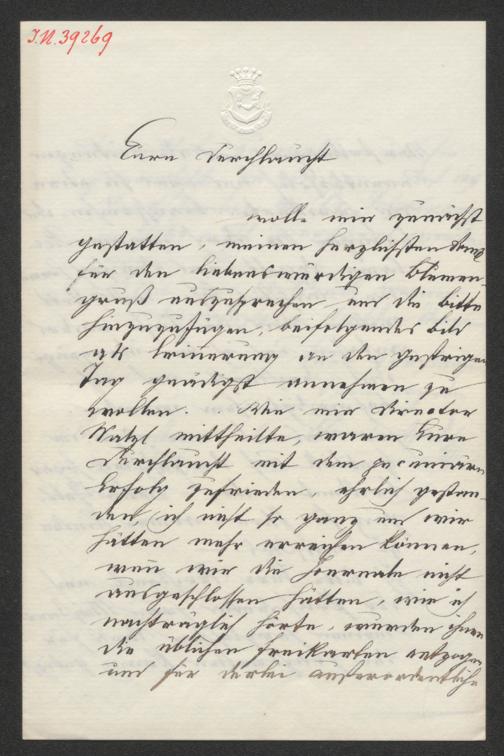 J.N. 39269
Eure Durchlaucht
wolle mir zunächst
gestatten, meinen herzlichsten Dank
für den liebenswürdigen Blumen
gruß auszusprechen und die Bitte
hinzuzufügen, beifolgendes Bild
als Erinnerung an den gestrigen
Tag gnädigst annehmen zu
wollen. Wie mir Director
mittheilte, waren Eure
Durchlaucht mit dem pecuniären
Erfolg zufrieden, ehrlich gestan
den, ich nicht so ganz und wir
hätten mehr erreichen können,
wenn wir die Journale nicht
ausgeschlossen hätten, wie ich
nachträglich hörte, wurden ihnen
die üblichen Freikarten entzogen
und für derlei außerordentliche